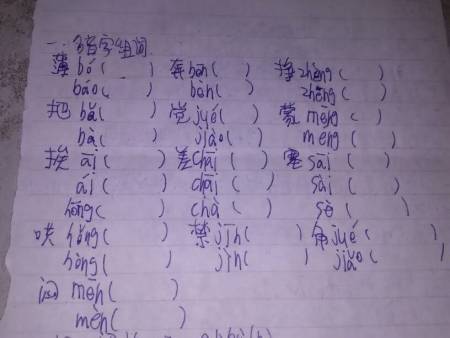 一、多音字组词
薄 bó( ) 奔 bēn( ) 挣 zhèng( )
báo( ) bèn( ) zhēng( )
把 bǎ( ) 觉 jué( ) 蒙 měng( )
bà( ) jiào( ) méng( )
挨 āi( ) 差 chāi( ) 塞 sāi( )
ái( ) chāi( ) sài( )
hōng( ) chà( ) sè( )
哄 hǒng( ) 禁 jīn( ) 角 jué( )
hòng( ) jìn( ) jiǎo( )
闷 mēn( )
mèn( )